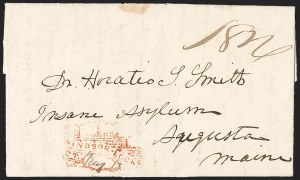 18¾
Dr. Horatio S. Smith
Insane Asylum
Augusta
Maine
WINDSOR
Aug 13